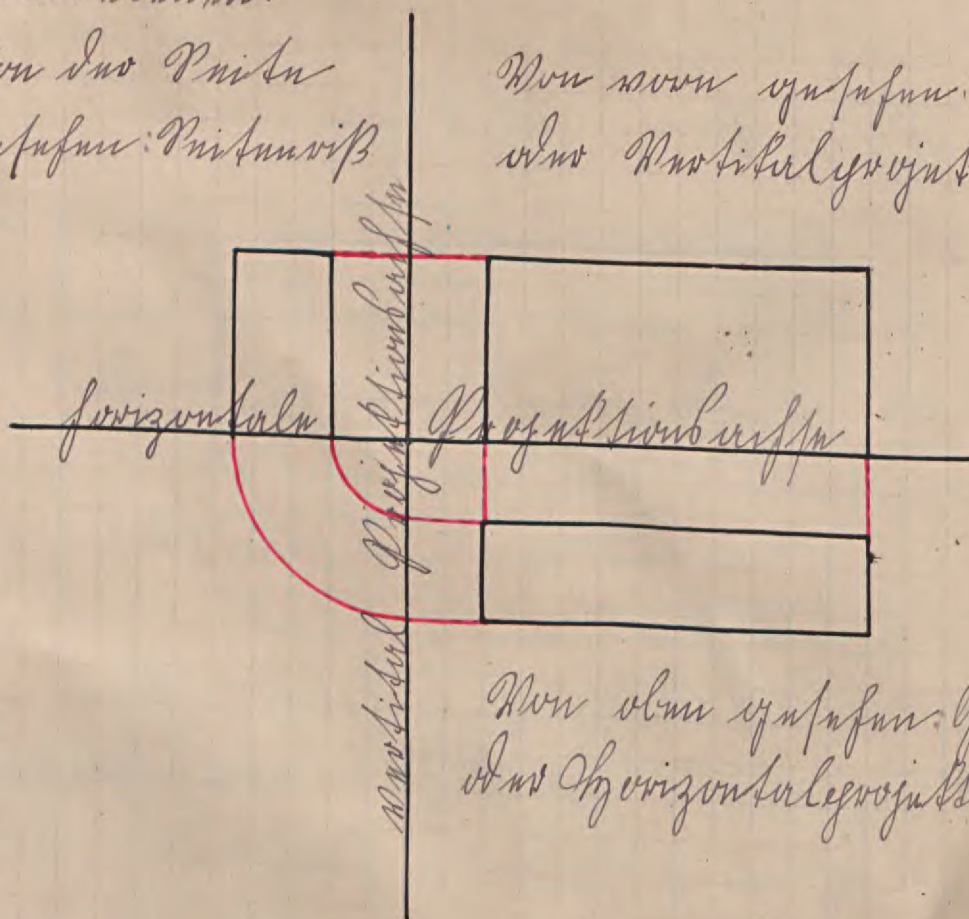 on der Seite
sehen: Seitenriß
Von vorn gesehen.
oder Vertikalprojek
horizontale Projektionsachse
vertikal Projektionsachse
Von oben gesehen: G
oder Horizontalprojekt